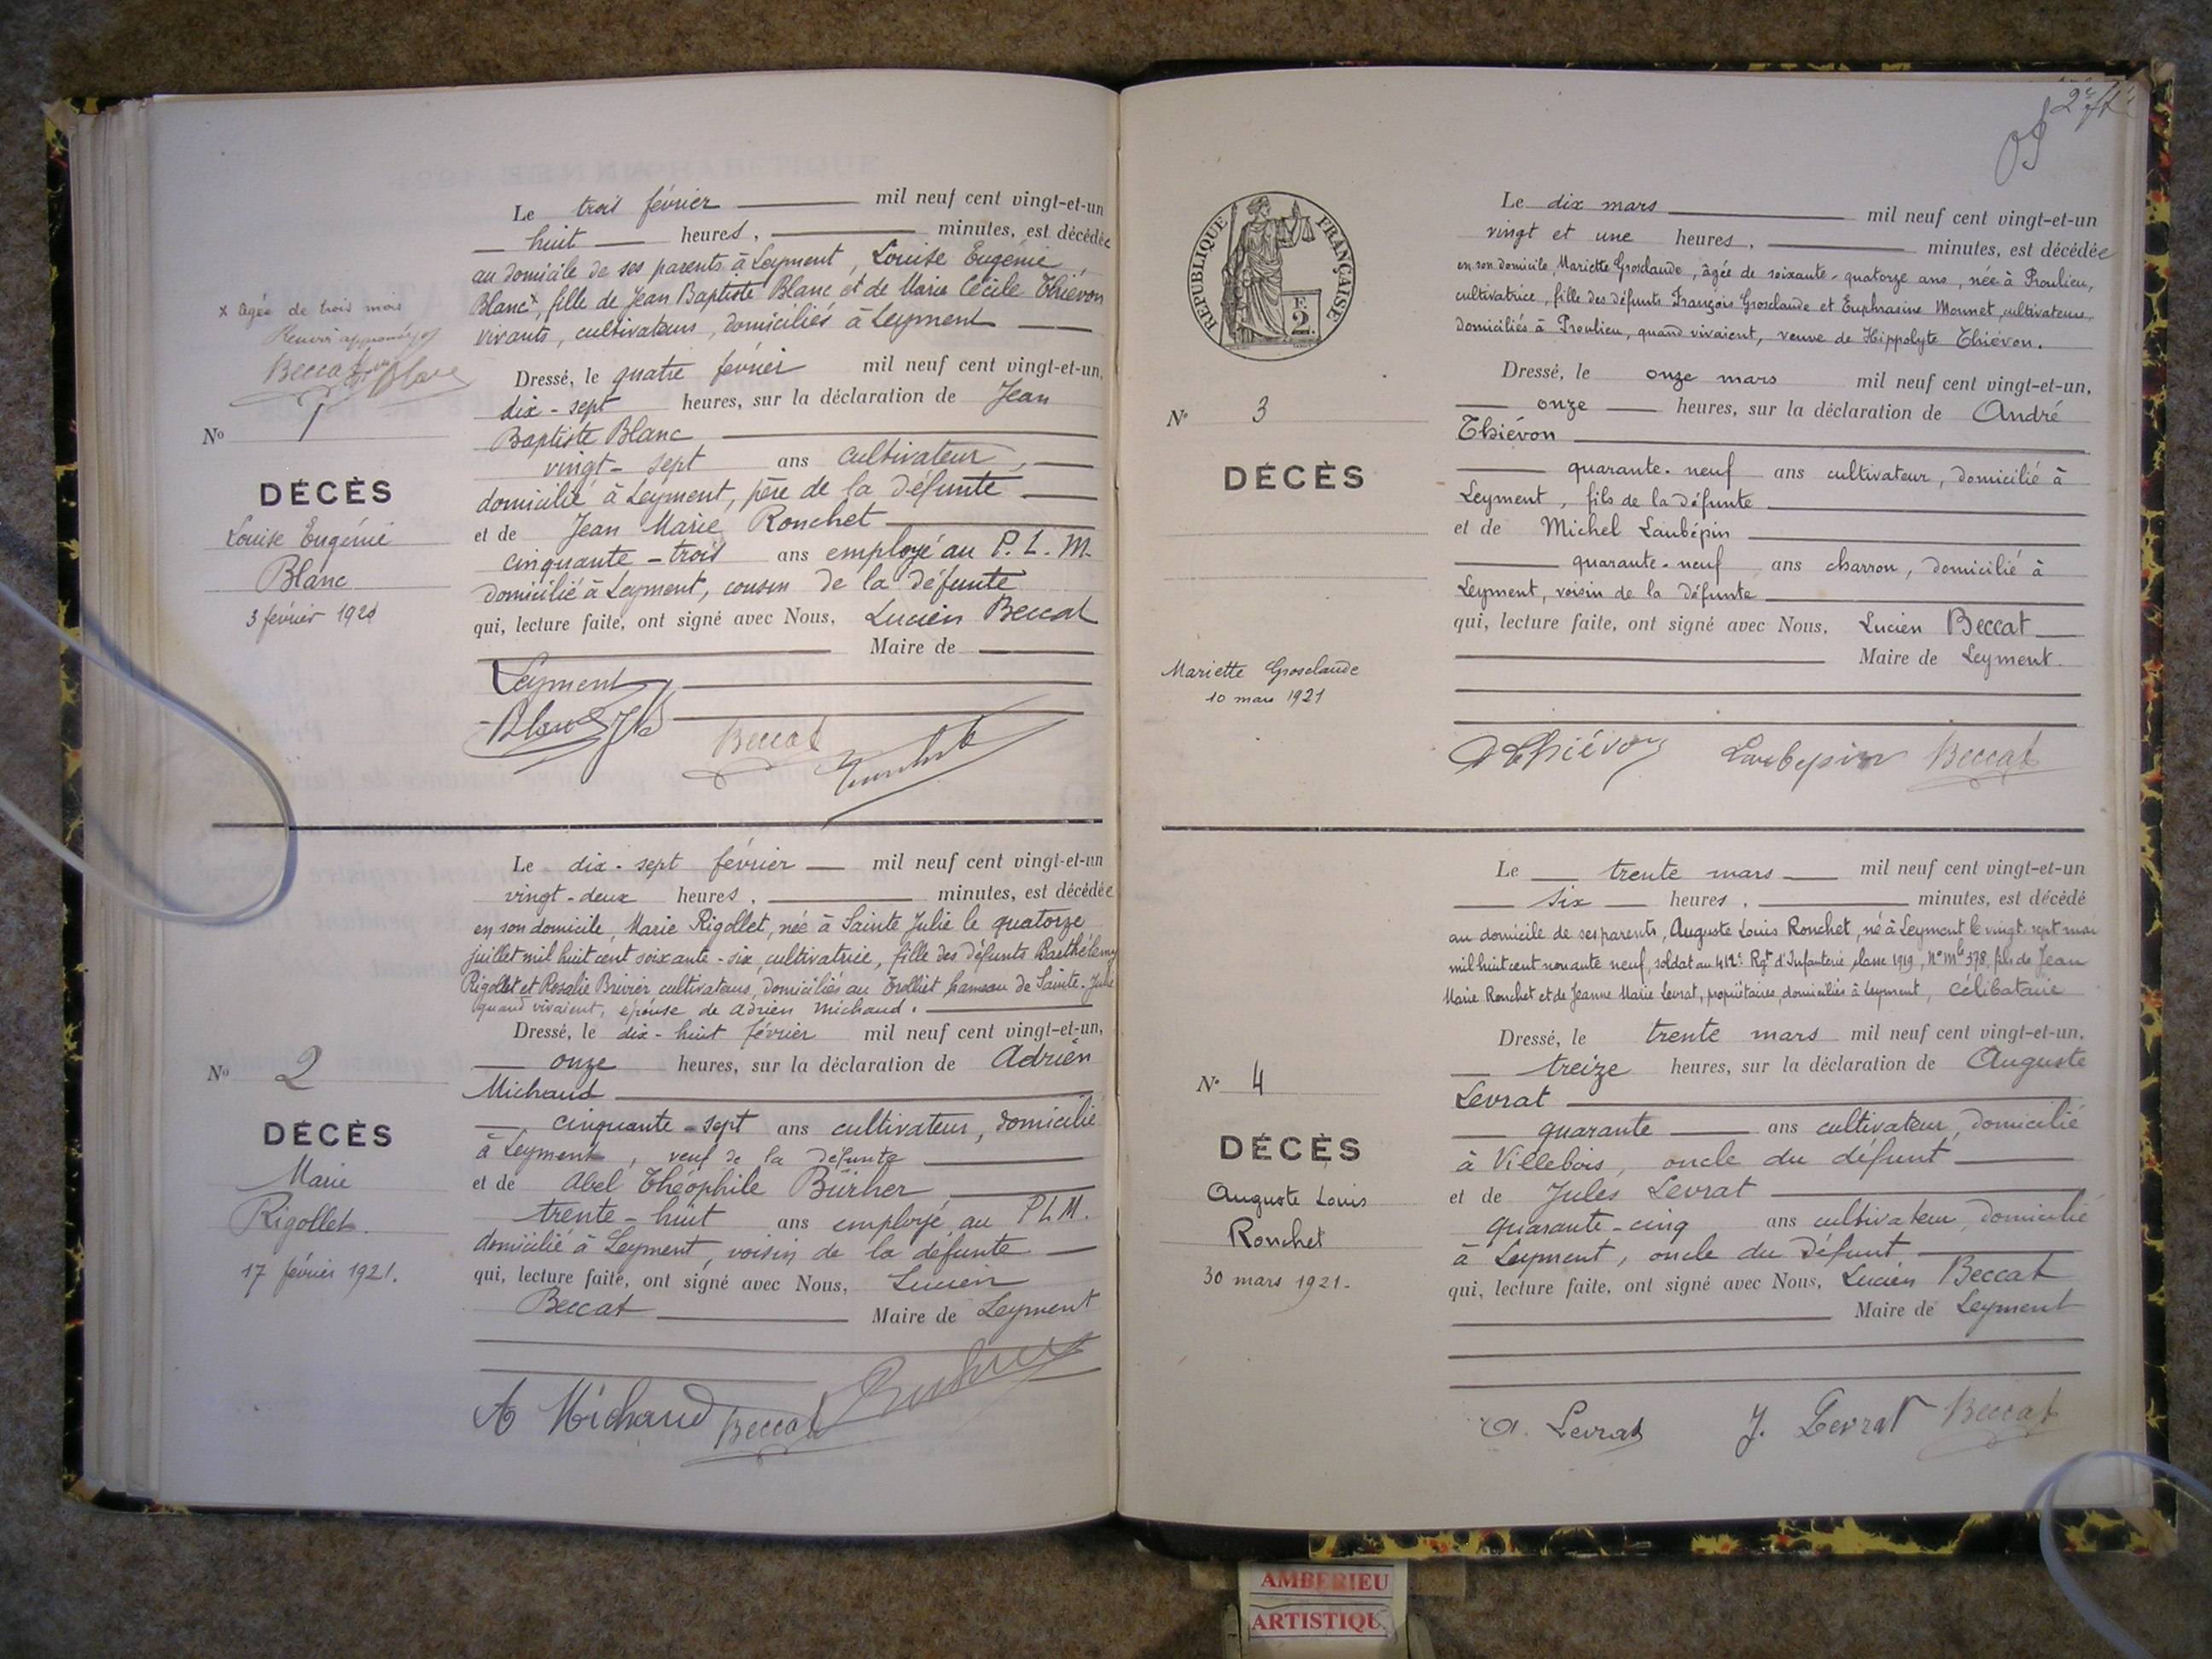 Le trois février mil neuf cent vingt-et-un
huit heures, minutes, est décédée
au domicile de ses parents à Leyment, Louise Eugénie
Blanc x, fille de Jean Baptiste Blanc et de Marie Cécile Thiévon
vivants, cultivateurs, domiciliés à Leyment
x Agée de trois mois
Renvoi approuvé
Beccat Blanc
Dressé, le quatre février mil neuf cent vingt-et-un,
dix-sept heures, sur la déclaration de Jean
Baptiste Blanc
vingt-sept ans cultivateur,
domicilié à Leyment, père de la défunte
et de Jean Marie Ronchet
cinquante-trois ans employé au P.L.M.
domicilié à Leyment, cousin de la défunte
qui, lecture faite, ont signé avec Nous, Lucien Beccat
Maire de
Leyment
Blanc JB
Beccat
No 1
DÉCÈS
Louise Eugénie
Blanc
3 février 1921
Le dix-sept février mil neuf cent vingt-et-un
vingt-deux heures, minutes, est décédée
en son domicile, Marie Rigollet, née à Sainte Julie le quatorze
juillet mil huit cent soixante-six, cultivatrice, fille des défunts Barthélemy
Rigollet et Rosalie Brivier cultivateurs, domiciliés au Trolliet hameau de Sainte-Julie
quand vivaient, épouse de Adrien Michaud.
Dressé, le dix-huit février mil neuf cent vingt-et-un,
onze heures, sur la déclaration de Adrien
Michaud
cinquante-sept ans cultivateur, domicilié
à Leyment, veuf de la défunte
et de Abel Théophile Bürher
trente-huit ans employé au PLM.
domicilié à Leyment, voisin de la défunte
qui, lecture faite, ont signé avec Nous, Lucien
Beccat Maire de Leyment
A Michaud Beccat
No 2
DÉCÈS
Marie
Rigollet.
17 février 1921.
2e
RÉPUBLIQUE FRANÇAISE
F.
2.
Le dix mars mil neuf cent vingt-et-un
vingt et une heures, minutes, est décédée
en son domicile, Mariette Grosclaude, âgée de soixante-quatorze ans, née à Proulieu,
cultivatrice, fille des défunts François Grosclaude et Euphrasine Monnet, cultivateurs,
domiciliés à Proulieu, quand vivaient, veuve de Hippolyte Thiévon.
Dressé, le onze mars mil neuf cent vingt-et-un,
onze heures, sur la déclaration de André
Thiévon
quarante-neuf ans cultivateur, domicilié à
Leyment, fils de la défunte
et de Michel Laubépin
quarante-neuf ans charron, domicilié à
Leyment, voisin de la défunte
qui, lecture faite, ont signé avec Nous, Lucien Beccat
Maire de Leyment.
A Thiévon Laubepin Beccat
No 3
DÉCÈS
Mariette Grosclaude
10 mars 1921
Le trente mars mil neuf cent vingt-et-un
six heures, minutes, est décédé
au domicile de ses parents, Auguste Louis Ronchet, né à Leyment le vingt-sept mai
mil huit cent nonante neuf, soldat au 412e Rgt d'Infanterie classe 1919, No Mle 378, fils de Jean
Marie Ronchet et de Jeanne Marie Levrat, propriétaires, domiciliés à Leyment, célibataire
Dressé, le trente mars mil neuf cent vingt-et-un,
treize heures, sur la déclaration de Auguste
Levrat
quarante ans cultivateur, domicilié
à Villebois, oncle du défunt
et de Jules Levrat
quarante-cinq ans cultivateur, domicilié
à Leyment, oncle du défunt
qui, lecture faite, ont signé avec Nous, Lucien Beccat
Maire de Leyment
A. Levrat J. Levrat Beccat
No 4
DÉCÈS
Auguste Louis
Ronchet
30 mars 1921.
AMBERIEU
ARTISTIQU